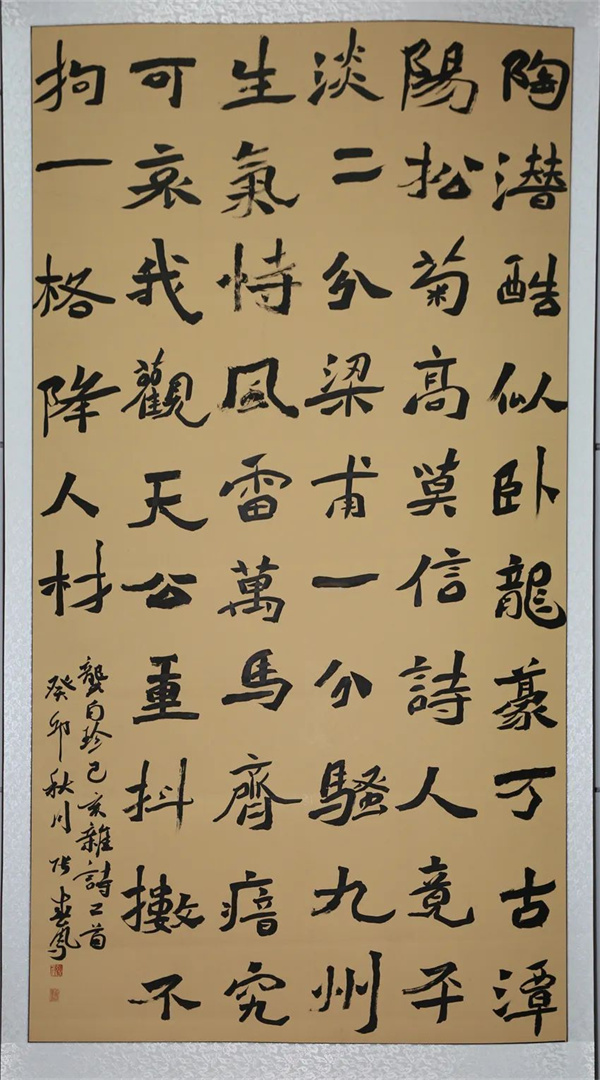 陶潜酷似卧龍豪万古潭
陽松菊高莫信詩人竟平
淡二分梁甫一分騷九州
生氣恃風雷萬馬齊瘖究
可哀我觀天公重抖擻不
拘一格降人材
龔自珍己亥雜詩二首
癸卯秋月张春鳳